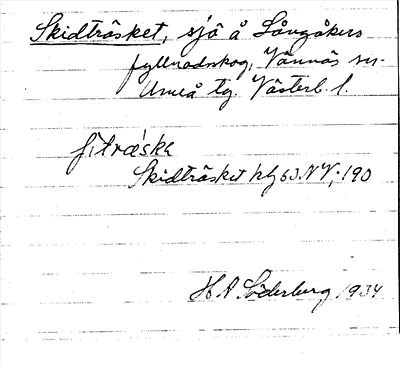 Skidträsket, sjö å Långåkers
fyllnadsskog, Vännäs sn.
Umeå tg. Västerb. l.
fi̍træ̀ska
Skidträsket ktg 60 NV; 190
H A Söderberg 1934